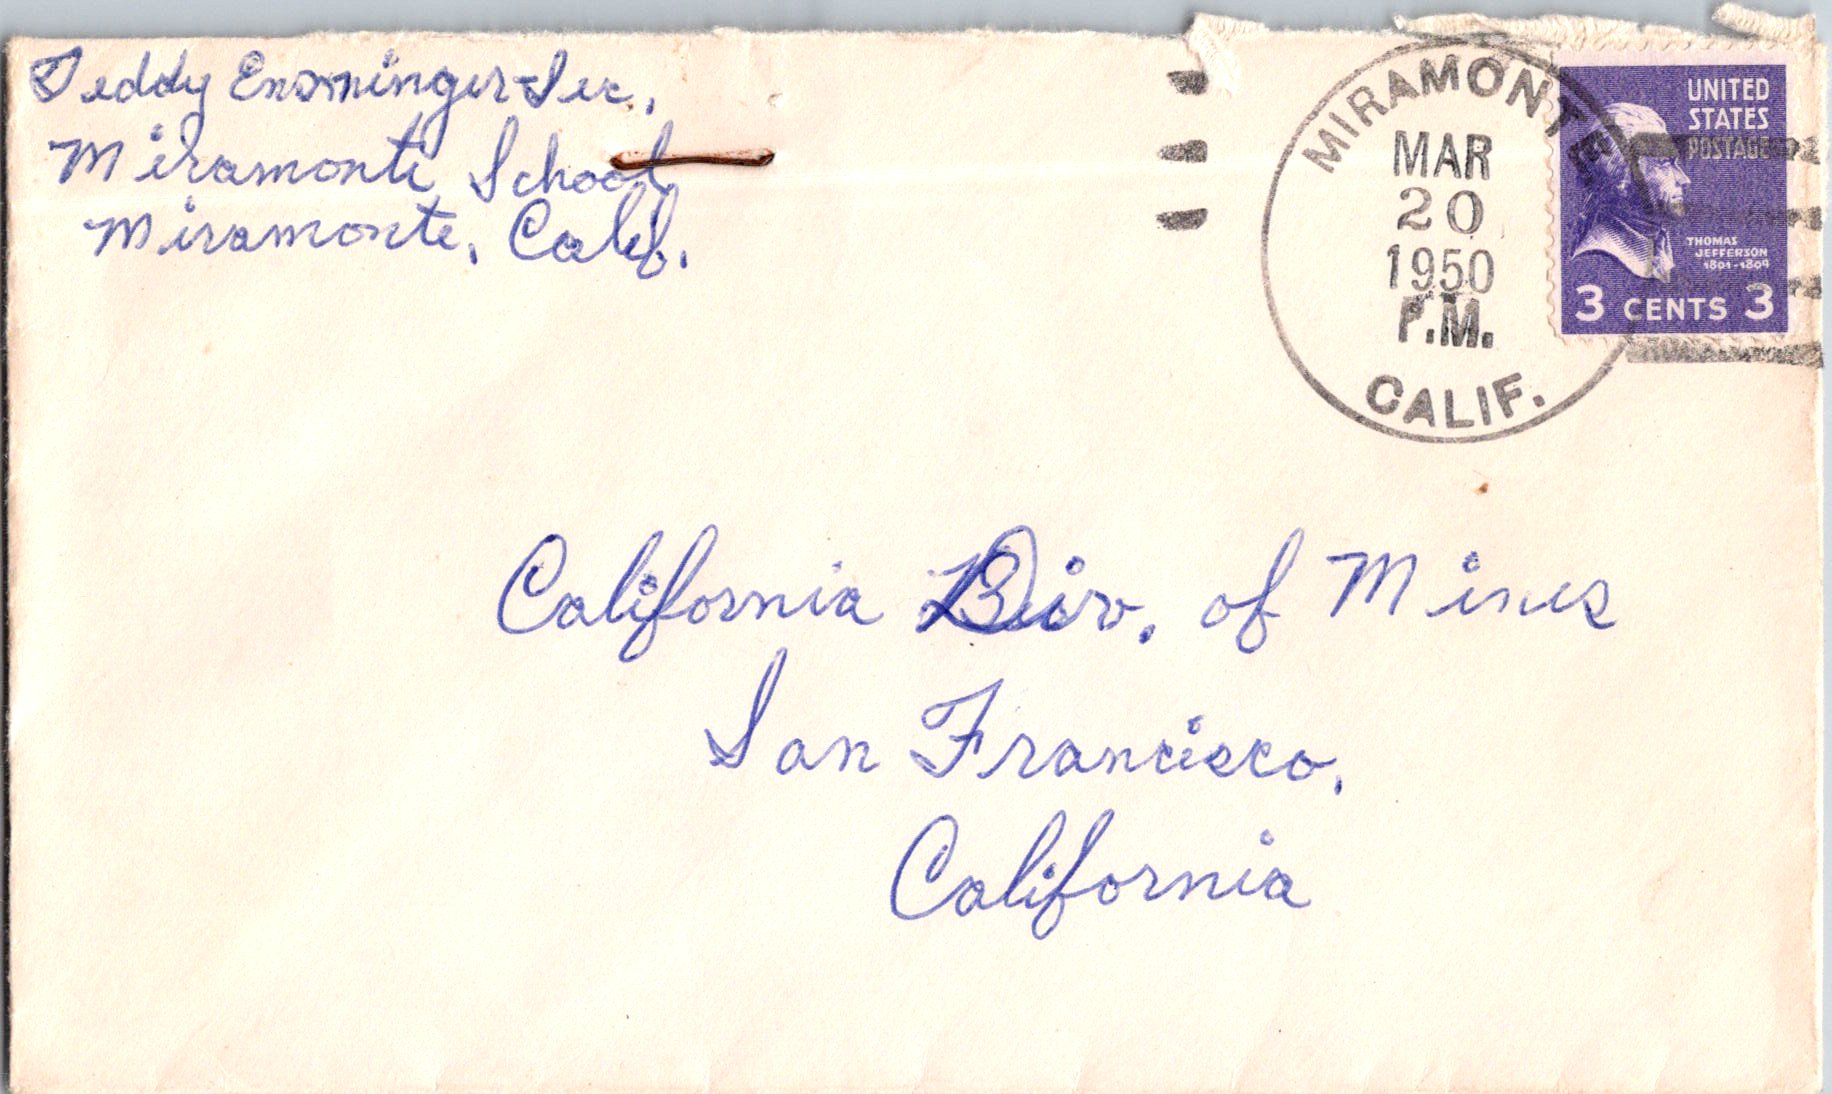 Teddy Ensminger Sec.
Miramonte School
Miramonte, Calif.
MIRAMONTE
MAR
20
1950
P.M.
CALIF.
UNITED
STATES
POSTAGE
THOMAS
JEFFERSON
1801-1809
3 CENTS 3
California Div. of Mines
San Francisco,
California